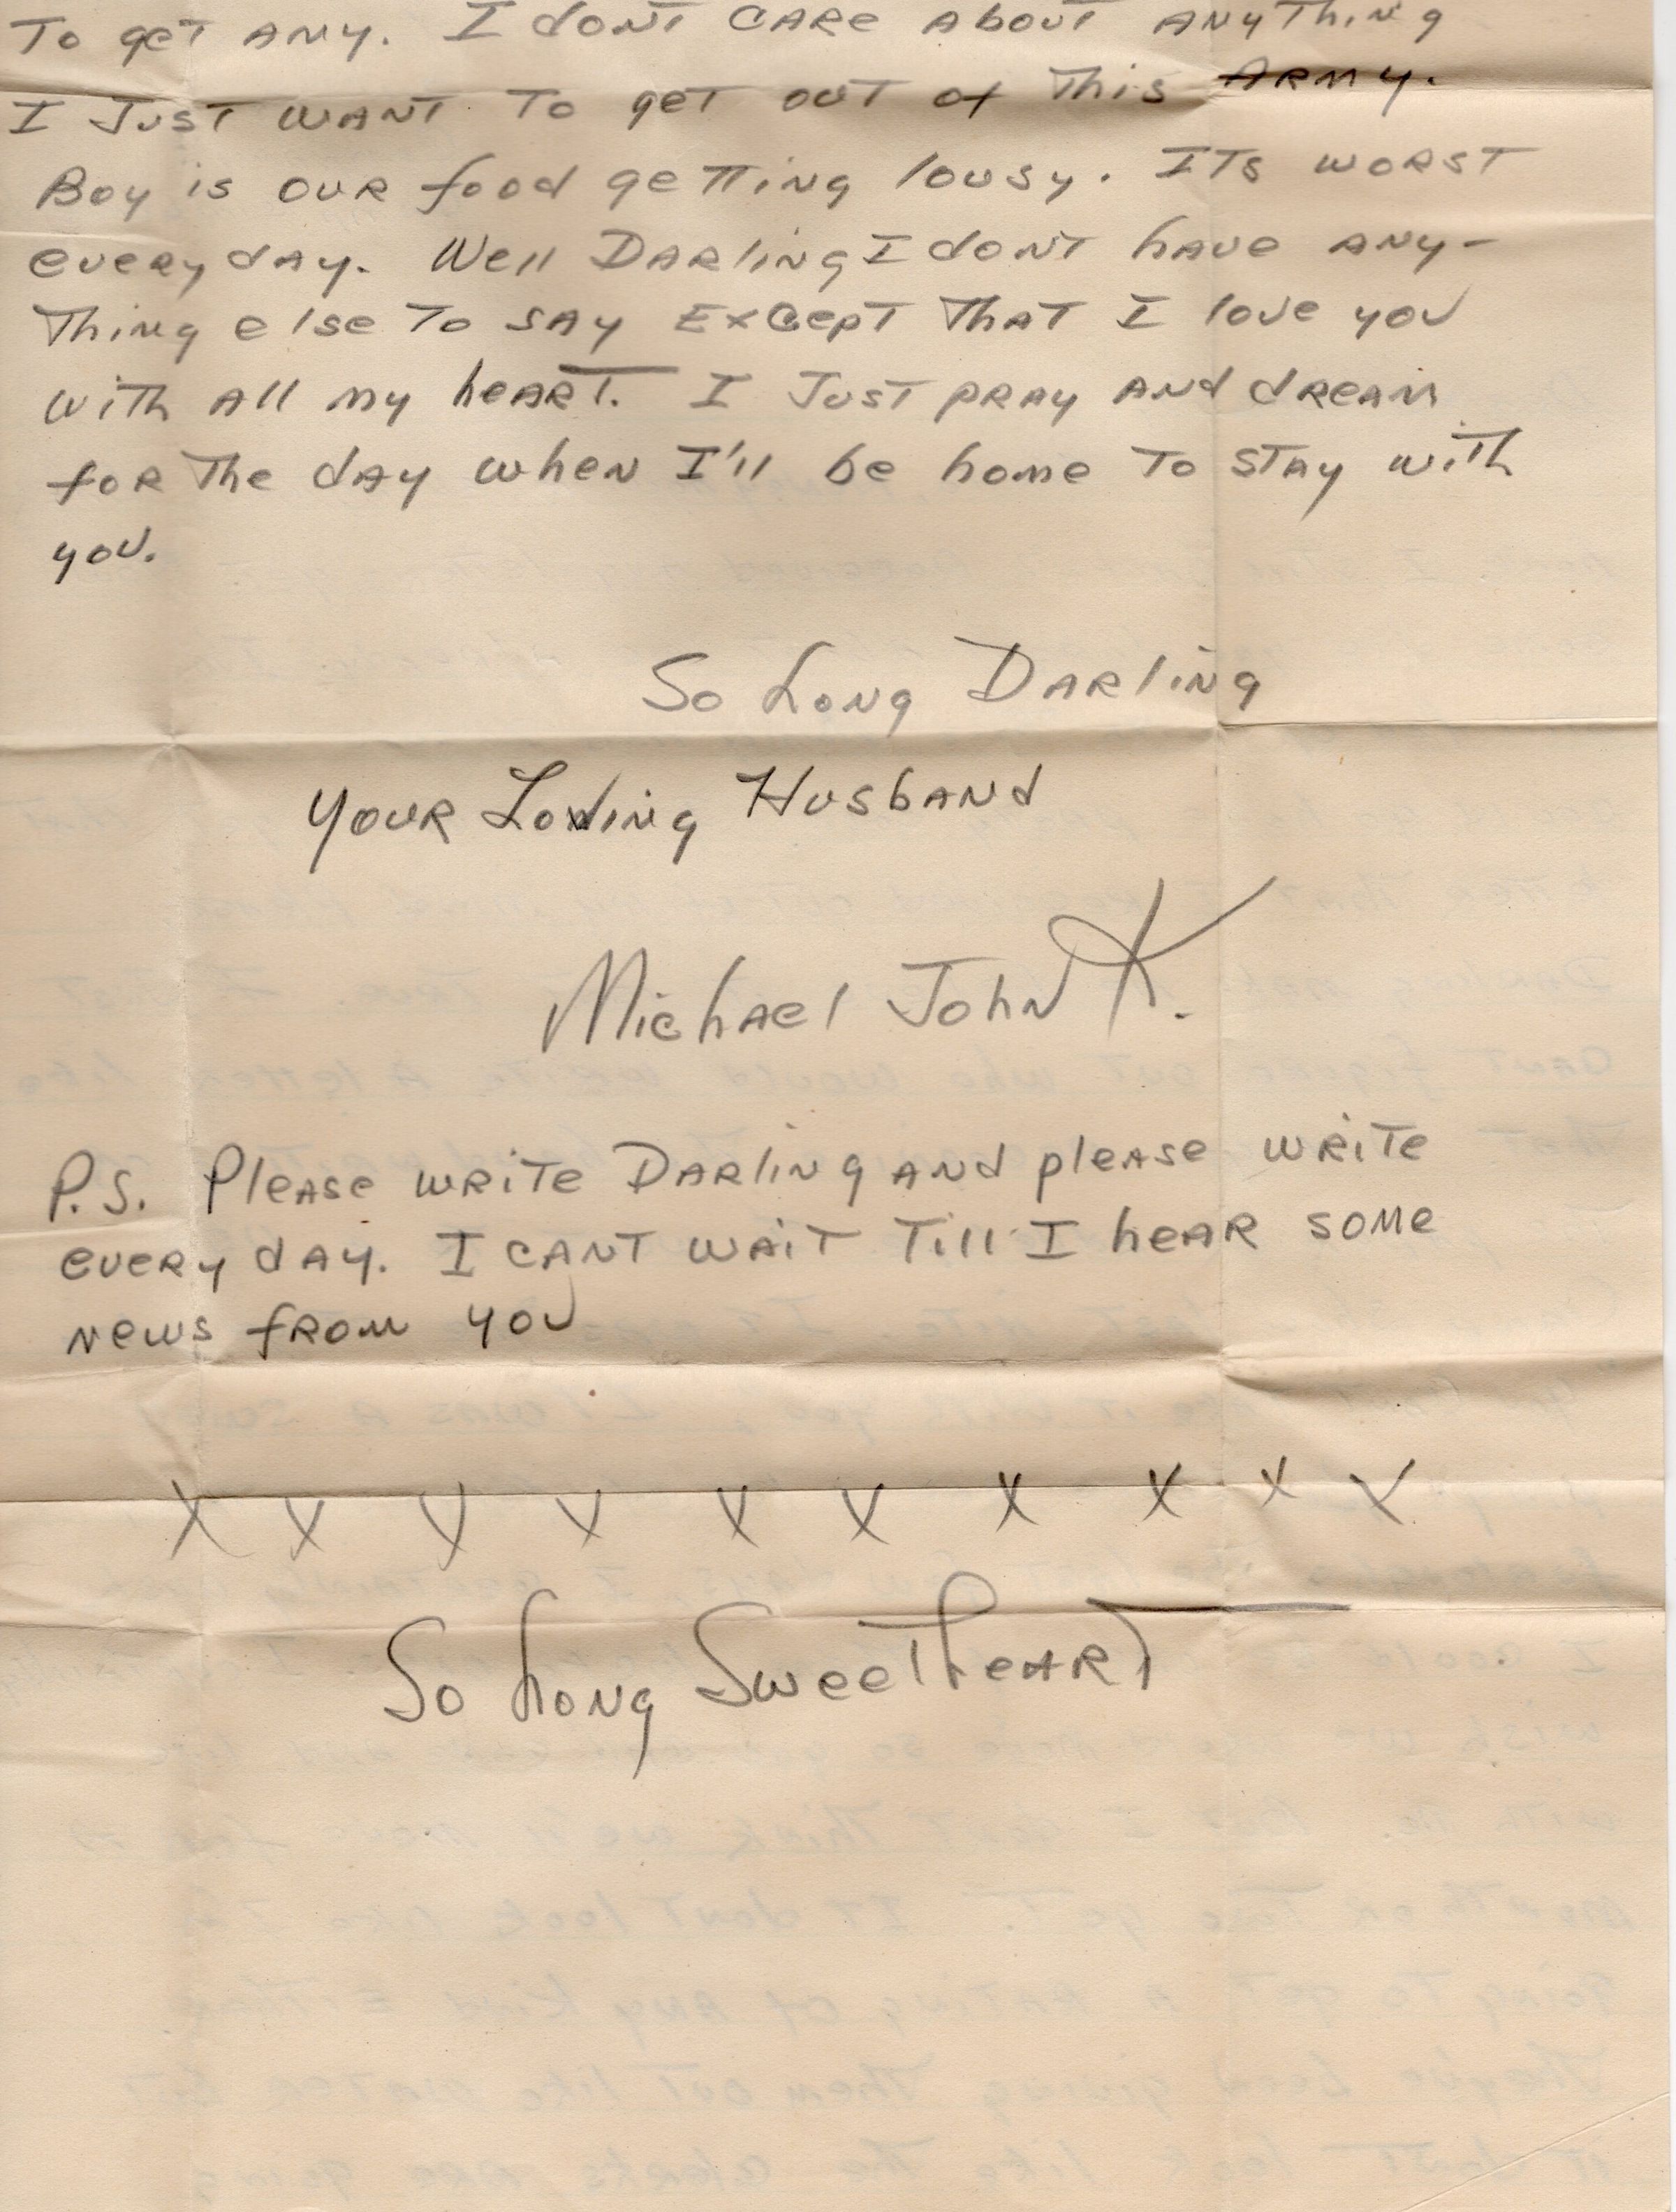 To get any. I dont care about anything
I Just want to get out of this Army.
Boy is our food getting lousy. Its worst
every day. Well Darling I dont have any-
thing else to say Except that I love you
with all my heart. I Just pray and dream
for the day when I'll be home to stay with
you.
So Long Darling
Your Loving Husband
Michael John K.
P.S. Please write Darling and please write
every day. I cant wait till I hear some
news from you
X X X X X X X X X X
So Long Sweetheart